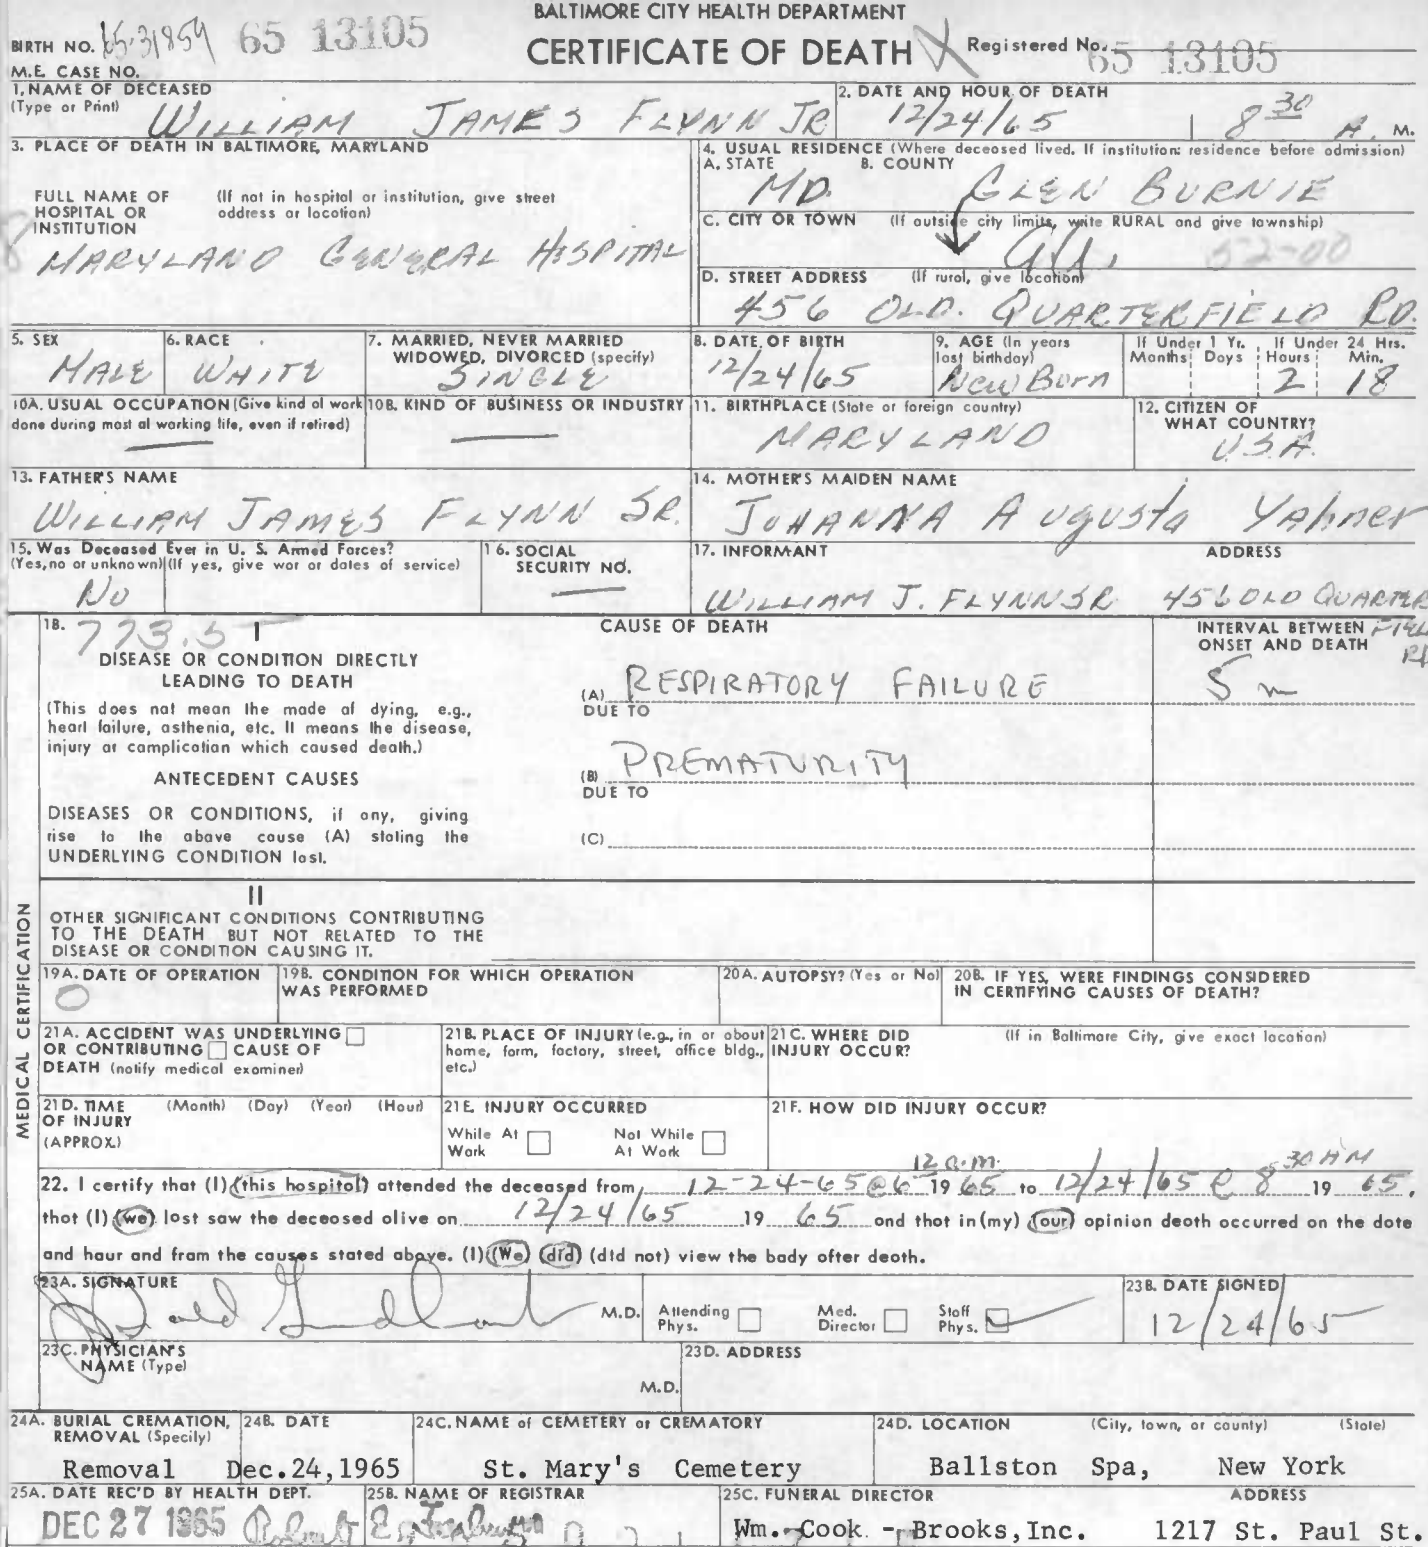 BALTIMORE CITY HEALTH DEPARTMENT
BIRTH NO. 65-31854 65 13105
CERTIFICATE OF DEATH
Registered No. 65 13105
M.E. CASE NO.
1. NAME OF DECEASED
(Type or Print) WILLIAM JAMES FLYNN JR
2. DATE AND HOUR OF DEATH
12/24/65 8 30 A. M.
3. PLACE OF DEATH IN BALTIMORE, MARYLAND
FULL NAME OF HOSPITAL OR INSTITUTION
(If not in hospital or institution, give street address or location)
MARYLAND GENERAL HOSPITAL
4. USUAL RESIDENCE (Where deceased lived. If institution: residence before admission)
A. STATE B. COUNTY
MD. GLEN BURNIE
C. CITY OR TOWN (If outside city limits, write RURAL and give township)
52-00
D. STREET ADDRESS (If rural, give location)
456 OLD. QUARTERFIELD RD.
5. SEX
MALE
6. RACE
WHITE
7. MARRIED, NEVER MARRIED
WIDOWED, DIVORCED (specify)
SINGLE
8. DATE OF BIRTH
12/24/65
9. AGE (In years last birthday)
New Born
If Under 1 Yr. If Under 24 Hrs.
Months Days Hours Min.
2 18
10A. USUAL OCCUPATION (Give kind of work
done during most of working life, even if retired)
10B. KIND OF BUSINESS OR INDUSTRY
11. BIRTHPLACE (State or foreign country)
MARYLAND
12. CITIZEN OF
WHAT COUNTRY?
USA.
13. FATHER'S NAME
WILLIAM JAMES FLYNN SR.
14. MOTHER'S MAIDEN NAME
JOHANNA Augusta Yahner
15. Was Deceased Ever in U. S. Armed Forces?
(Yes, no or unknown) (If yes, give war or dates of service)
No
16. SOCIAL
SECURITY NO.
17. INFORMANT ADDRESS
WILLIAM J. FLYNN SR 456 OLD QUARTER
FIELD RD
MEDICAL CERTIFICATION
18. 773.5 I
DISEASE OR CONDITION DIRECTLY
LEADING TO DEATH
(This does not mean the mode of dying, e.g.,
heart failure, asthenia, etc. It means the disease,
injury or complication which caused death.)
ANTECEDENT CAUSES
DISEASES OR CONDITIONS, if any, giving
rise to the above cause (A) stating the
UNDERLYING CONDITION last.
CAUSE OF DEATH
INTERVAL BETWEEN
ONSET AND DEATH
(A) RESPIRATORY FAILURE 5 m
DUE TO
(B) PREMATURITY
DUE TO
(C)
II
OTHER SIGNIFICANT CONDITIONS CONTRIBUTING
TO THE DEATH BUT NOT RELATED TO THE
DISEASE OR CONDITION CAUSING IT.
19A. DATE OF OPERATION
0
19B. CONDITION FOR WHICH OPERATION
WAS PERFORMED
20A. AUTOPSY? (Yes or No)
20B. IF YES, WERE FINDINGS CONSIDERED
IN CERTIFYING CAUSES OF DEATH?
21A. ACCIDENT WAS UNDERLYING
OR CONTRIBUTING CAUSE OF
DEATH (notify medical examiner)
21B. PLACE OF INJURY (e.g., in or about
home, farm, factory, street, office bldg.,
etc.)
21C. WHERE DID
INJURY OCCUR?
(If in Baltimore City, give exact location)
21D. TIME
OF INJURY
(APPROX.)
(Month) (Day) (Year) (Hour)
21E. INJURY OCCURRED
While At Work Not While At Work
21F. HOW DID INJURY OCCUR?
22. I certify that (I) (this hospital) attended the deceased from 12-24-65 @ 6 12 a.m. 19 65 to 12/24/65 @ 8 30 AM 19 65,
that (I) (we) last saw the deceased alive on 12/24/65 19 65 and that in (my) (our) opinion death occurred on the date
and hour and from the causes stated above. (I) (We) (did) (did not) view the body after death.
23A. SIGNATURE
M.D. Attending Phys. Med. Director Staff Phys.
23B. DATE SIGNED
12/24/65
23C. PHYSICIAN'S
NAME (Type)
M.D.
23D. ADDRESS
24A. BURIAL CREMATION,
REMOVAL (Specify)
Removal
24B. DATE
Dec.24,1965
24C. NAME of CEMETERY or CREMATORY
St. Mary's Cemetery
24D. LOCATION (City, town, or county) (State)
Ballston Spa, New York
25A. DATE REC'D BY HEALTH DEPT.
DEC 27 1965
25B. NAME OF REGISTRAR
Robert E.
25C. FUNERAL DIRECTOR ADDRESS
Wm. Cook - Brooks, Inc. 1217 St. Paul St.